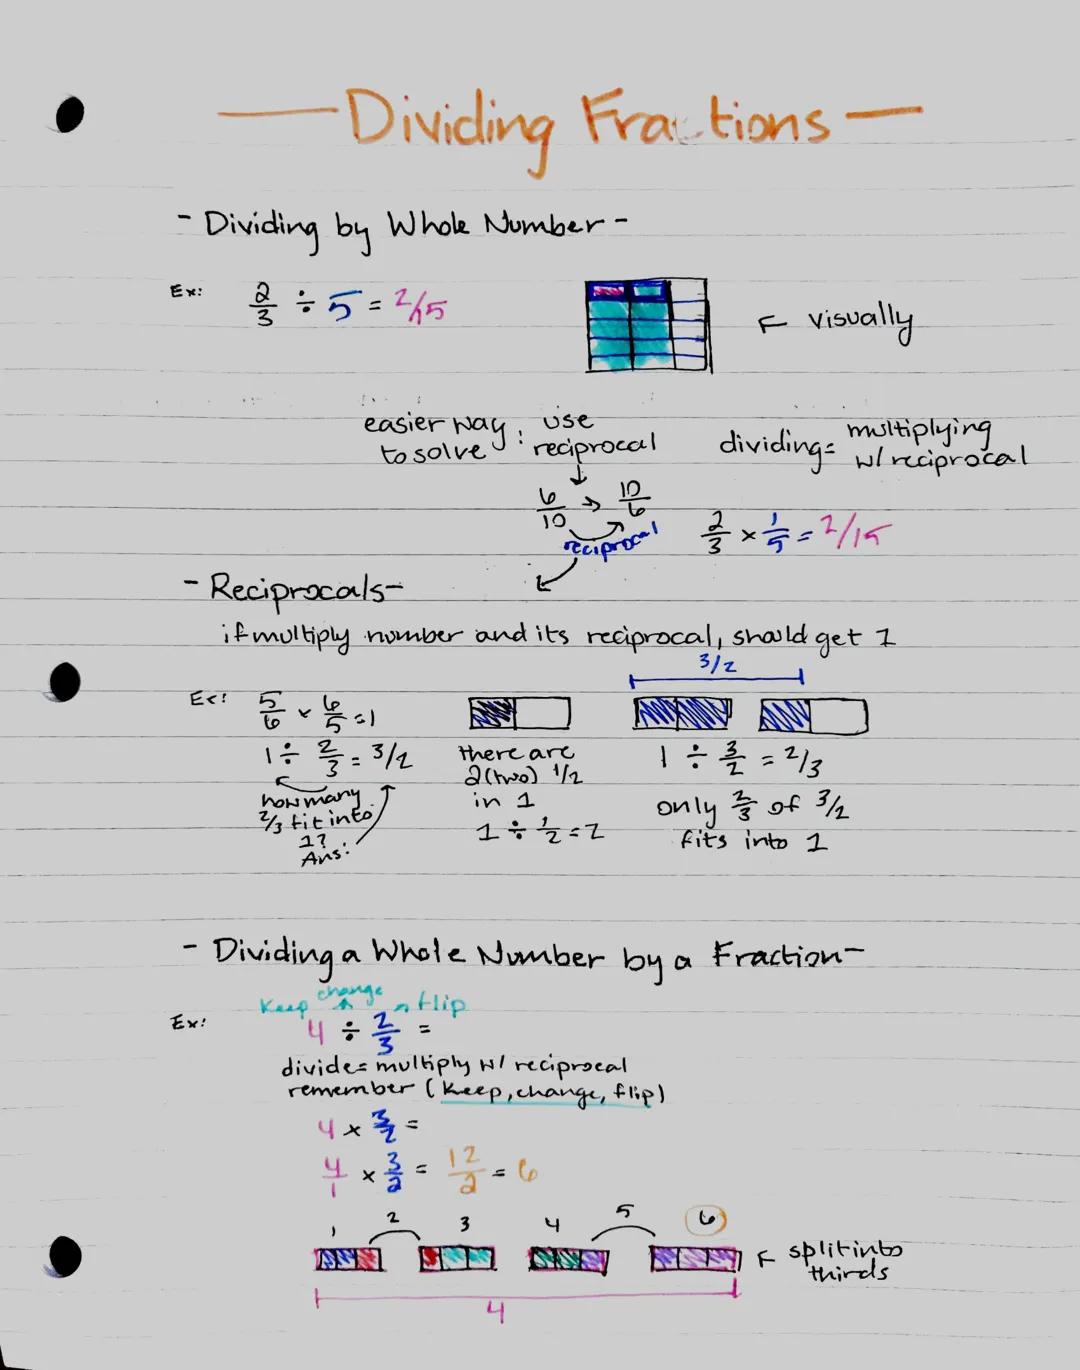 — Dividing Fractions —
- Dividing by Whole Number -
Ex: 2/3 ÷ 5 = 2/15
visually
easier way to solve: use reciprocal
dividing = multiplying w/ reciprocal
6/10 → 10/6
reciprocal
2/3 × 1/5 = 2/15
- Reciprocals -
if multiply number and its reciprocal, should get 1
3/2
Ex: 5/6 × 6/5 = 1
1 ÷ 2/3 = 3/2
how many
2/3 fit into
1?
Ans:
there are
2(two) 1/2
in 1
1 ÷ 1/2 = 2
1 ÷ 3/2 = 2/3
only 2/3 of 3/2
fits into 1
- Dividing a Whole Number by a Fraction -
Keep change flip
Ex: 4 ÷ 2/3 =
divide = multiply w/ reciprocal
remember (keep, change, flip)
4 × 3/2 =
4/1 × 3/2 = 12/2 = 6
1 2 3 4 5 6
split into
thirds
4